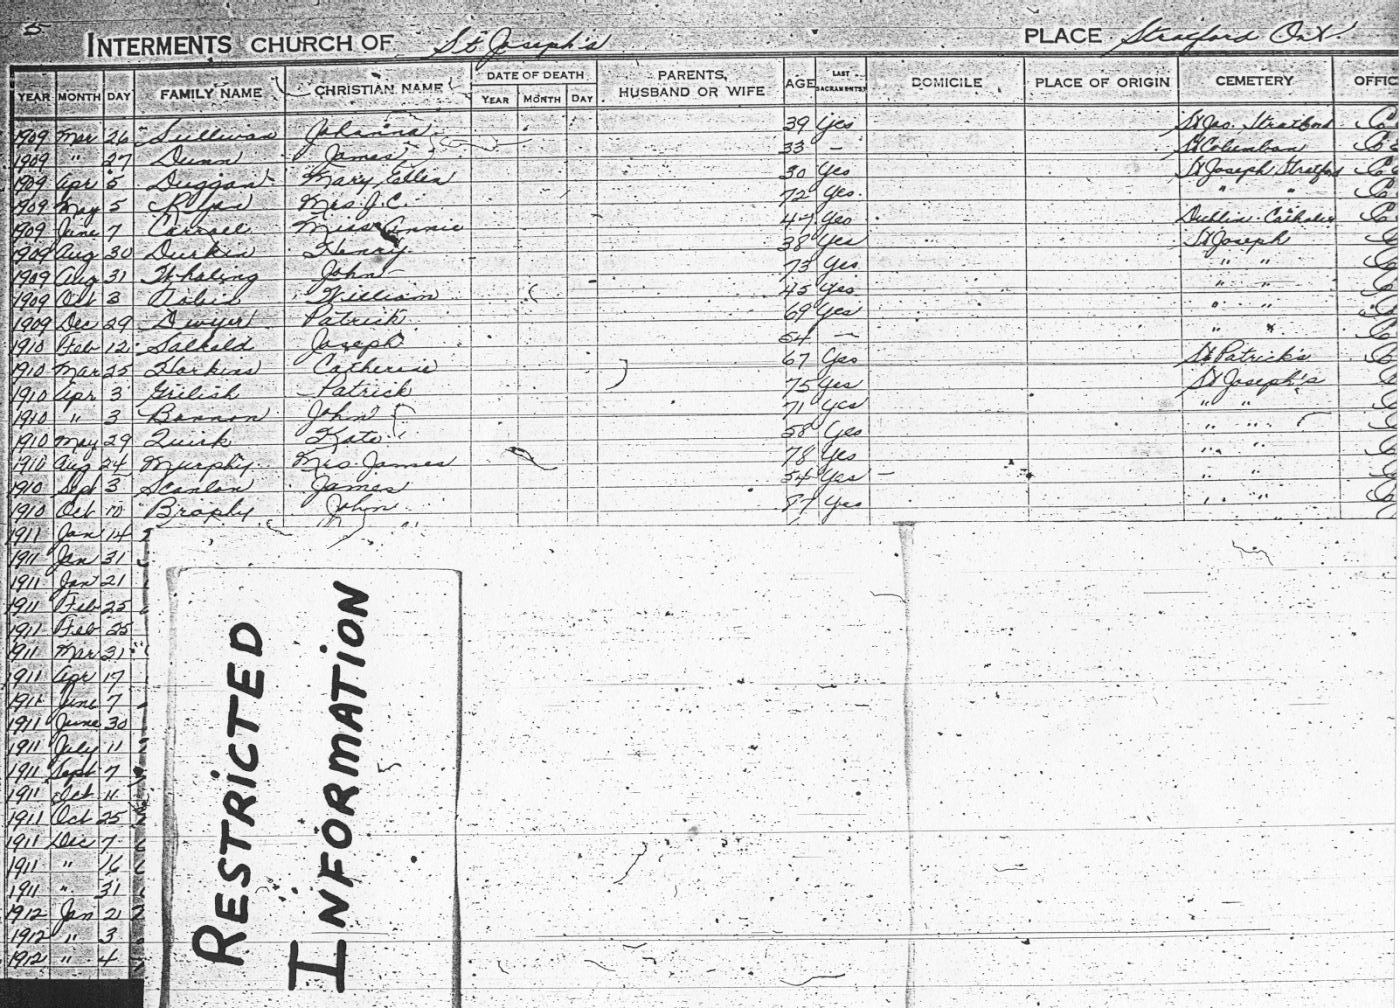 5
INTERMENTS CHURCH OF St Joseph's PLACE Stratford Ont.
YEAR MONTH DAY FAMILY NAME CHRISTIAN NAME DATE OF DEATH YEAR MONTH DAY PARENTS, HUSBAND OR WIFE AGE LAST SACRAMENTS DOMICILE PLACE OF ORIGIN CEMETERY OFFIC
1909 Mar 26 Sullivan Johanna 39 Yes St Jos. Stratford
1909 " 27 Dunn James 33 – St Columban
1909 Apr 5 Duggan Mary Ellen 30 Yes St Joseph Stratford
1909 May 5 Mrs J. C. 72 Yes. " "
1909 June 7 Carroll Miss Annie 47 Yes Dublin Catholic
1909 Aug 30 Durkin Henry 38 Yes St Joseph
1909 Aug 31 Whaling John 73 Yes " "
1909 Oct 3 Tobin William 45 Yes " "
1909 Dec 29 Dwyer Patrick 69 Yes " "
1910 Feb 12 Salkeld Joseph 64 – " "
1910 Mar 25 Harkins Catherine 67 Yes St Patrick's
1910 Apr 3 Patrick 75 Yes St Joseph's
1910 " 3 Bannon John 71 Yes " "
1910 May 29 Quirk Kate 58 Yes " "
1910 Aug 24 Murphy Mrs James 78 Yes " "
1910 Sept 3 Scanlon James 54 Yes " "
1910 Oct 10 Brophy John 87 Yes " "
1911 Jan 14
1911 Jan 31
1911 Jan 21
1911 Feb 25
1911 Feb 25
1911 Mar 31
1911 Apr 17
1911 June 7
1911 June 30
1911 July 11
1911 Sept 7
1911 Oct 11
1911 Oct 25
1911 Dec 7
1911 " 16
1911 " 31
1912 Jan 21
1912 " 3
1912 " 4
RESTRICTED
INFORMATION